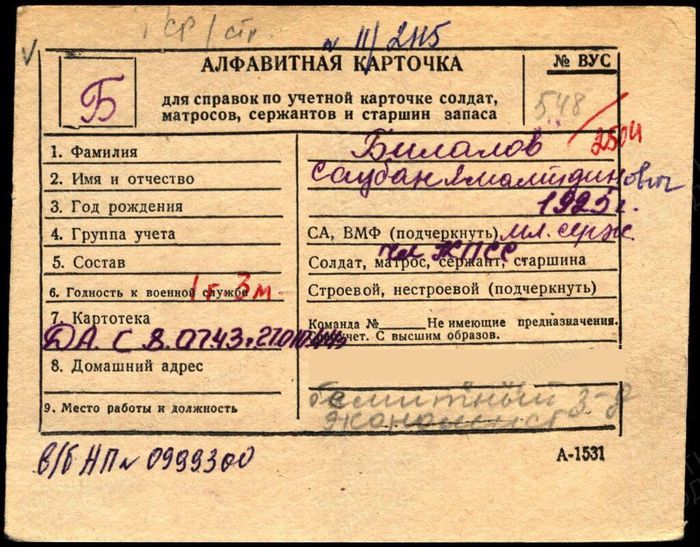 СР/стр.
№ 11/2115
Б
АЛФАВИТНАЯ КАРТОЧКА
№ ВУС
для справок по учетной карточке солдат,
матросов, сержантов и старшин запаса
548
250И
1. Фамилия
Билалов
2. Имя и отчество
3. Год рождения
1925 г.
4. Группа учета
СА, ВМФ (подчеркнуть) мл. серж
5. Состав
чл КПСС
Солдат, матрос, сержант, старшина
6. Годность к военной службе
1 г 3 м
Строевой, нестроевой (подчеркнуть)
7. Картотека
Команда № Не имеющие предназначения.
учет. С высшим образов.
ДА. С 8.0743
8. Домашний адрес
9. Место работы и должность
3-д
экономист
в/б НП № 0999300
А-1531